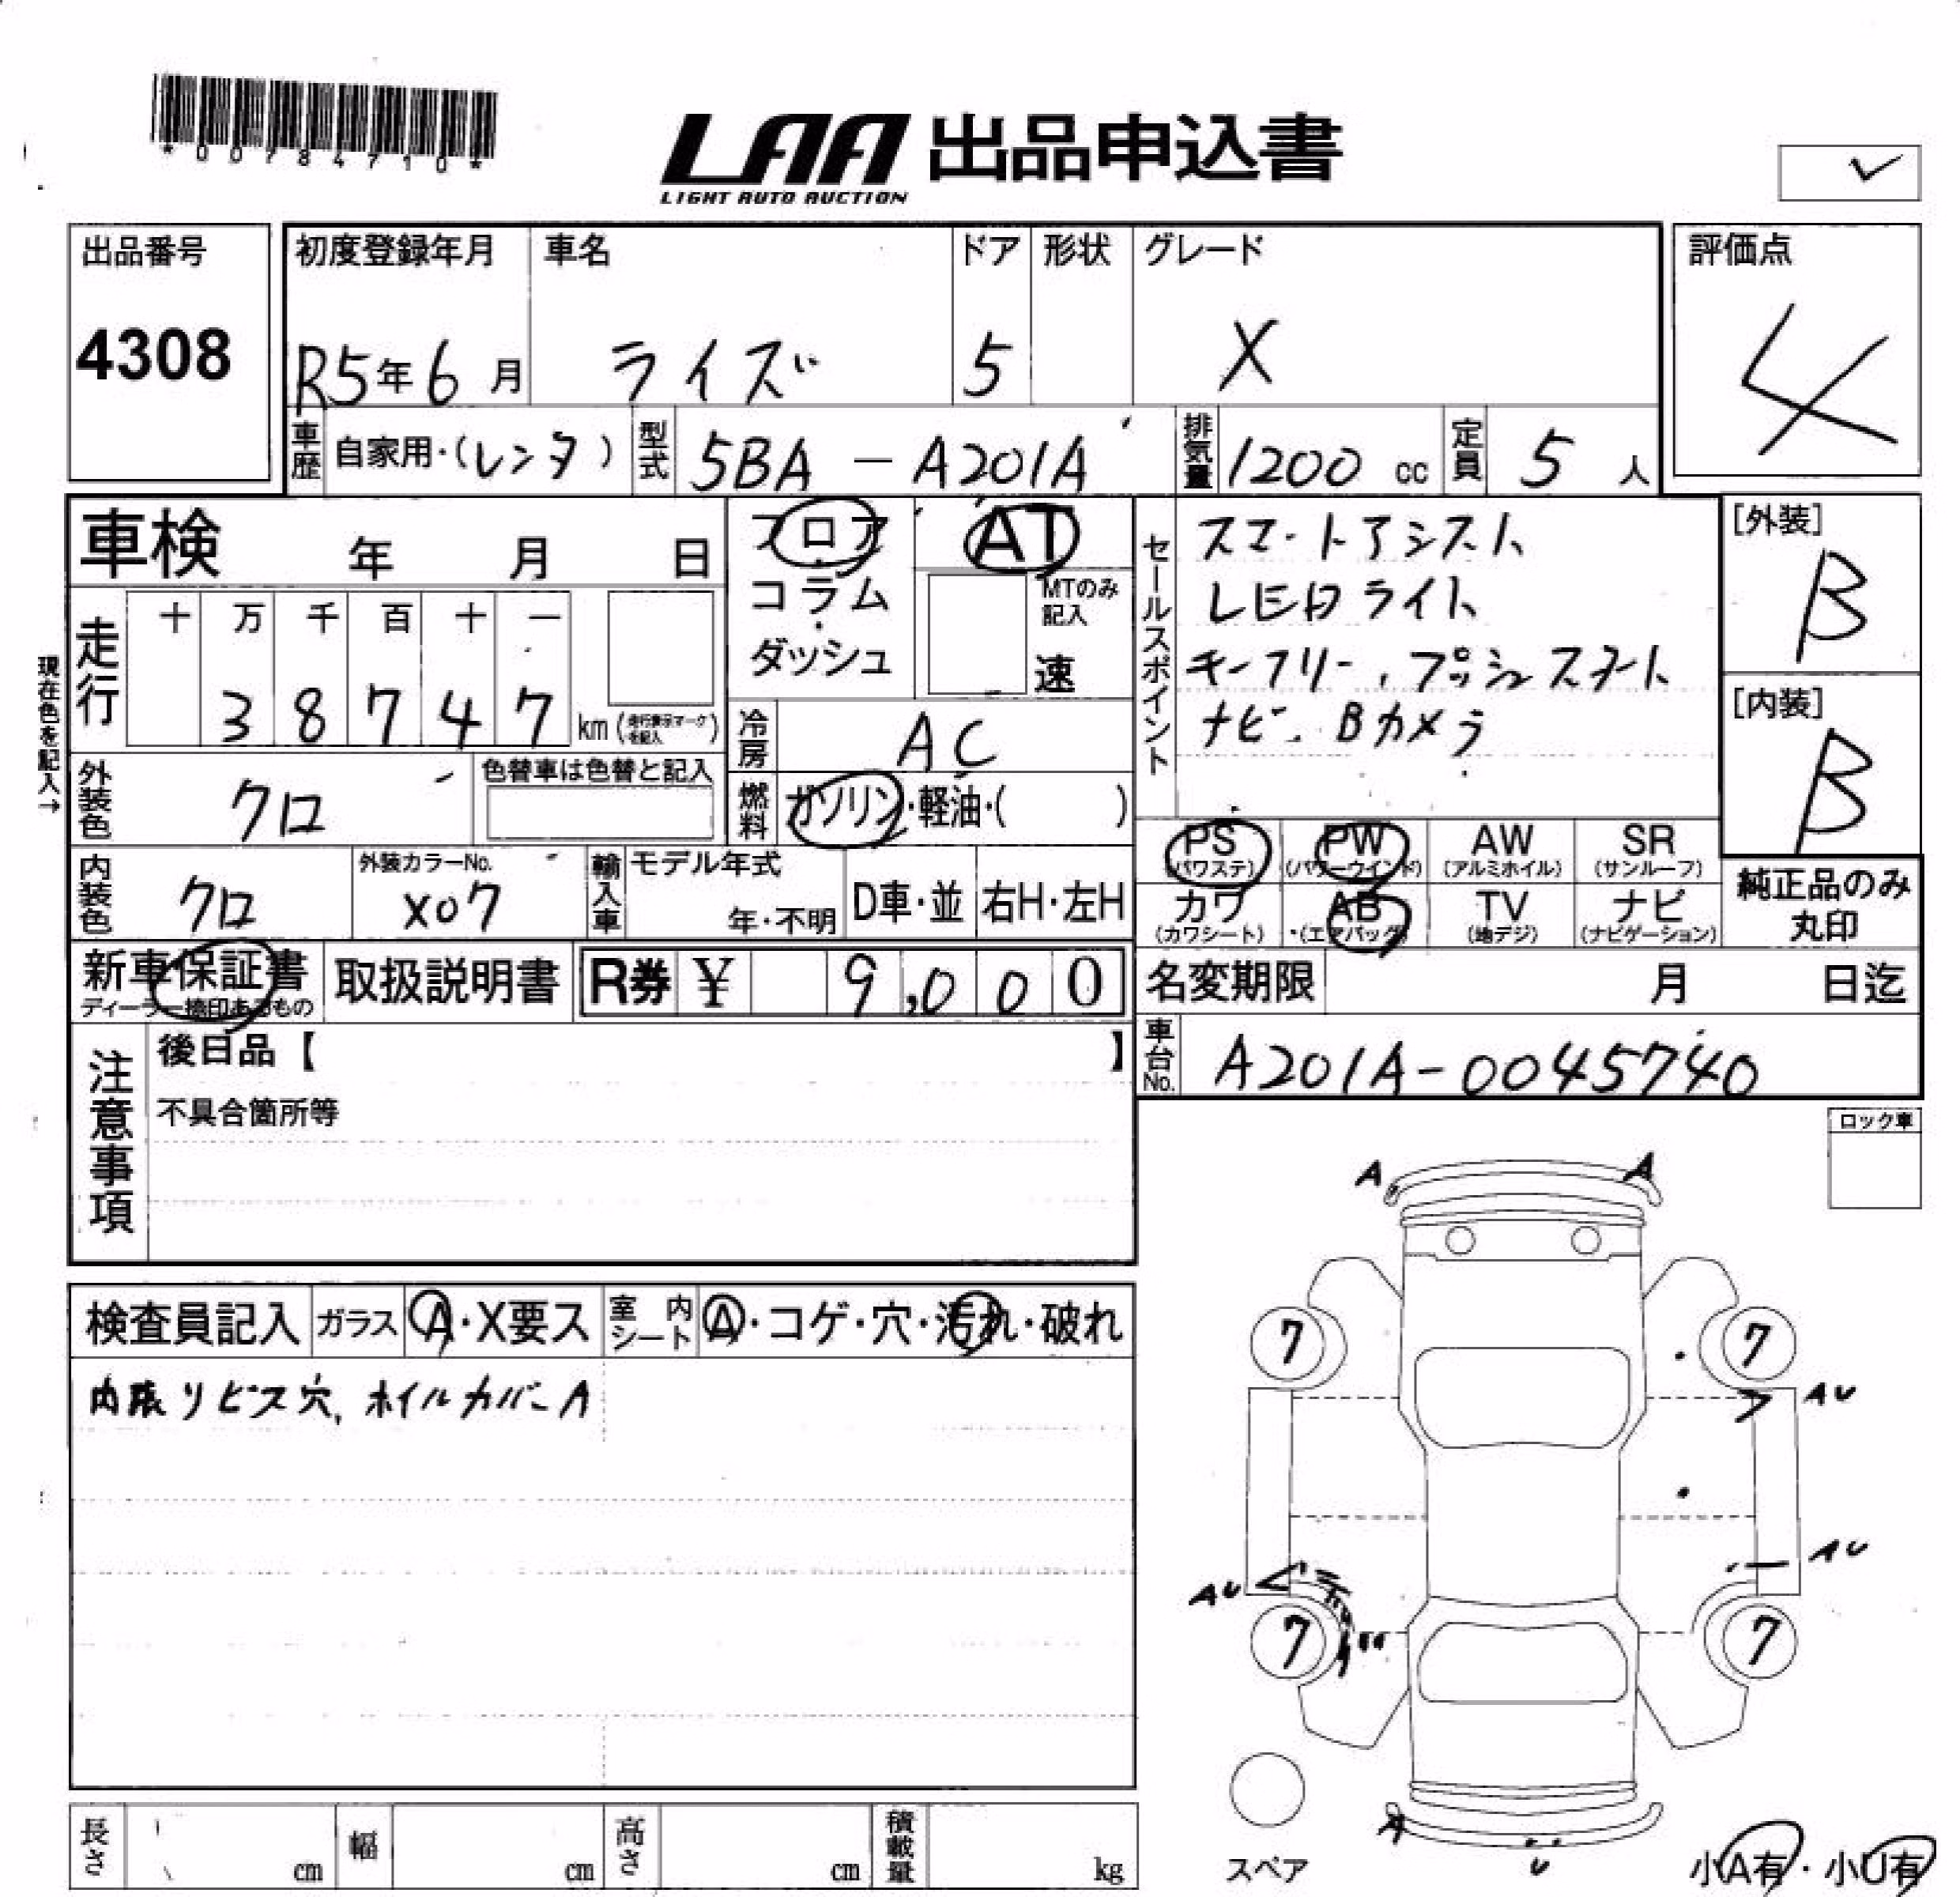 *00784710*
LAA 出品申込書
LIGHT AUTO AUCTION
✓
出品番号
4308
初度登録年月 車名 ドア 形状 グレード
R5年6月 ライズ 5 X
評価点
4
車歴 自家用・(レンタ) 型式 5BA-A201A 排気量 1200 cc 定員 5 人
車検 年 月 日
フロア
コラム
ダッシュ
AT
MTのみ
記入
速
セールスポイント
スマートアシスト
LEDライト
キーフリー,プッシュスタート
ナビ. Bカメラ
[外装]
B
[内装]
B
現在色を記入→
走行
十 万 千 百 十 一
3 8 7 4 7 km (走行表示マークを記入)
冷房 AC
燃料 ガソリン・軽油・( )
外装色 クロ 色替車は色替と記入
内装色 クロ 外装カラーNo. X07
輸入車 モデル年式 年・不明 D車・並 右H・左H
PS (パワステ) PW (パワーウインド) AW (アルミホイル) SR (サンルーフ)
カワ (カワシート) AB (エアバッグ) TV (地デジ) ナビ (ナビゲーション)
純正品のみ
丸印
新車保証書 取扱説明書 R券 ¥ 9,000
ディーラー捺印あるもの
名変期限 月 日迄
車台No. A201A-0045740
注意事項
後日品【 】
不具合箇所等
ロック車
検査員記入 ガラス A・X要ス 室内シート A・コゲ・穴・汚れ・破れ
内張りビス穴, ホイルカバーA
A A
7 7
AU
AU
AU
7 7
A
U
スペア
小A有・小U有
長さ cm 幅 cm 高さ cm 積載量 kg